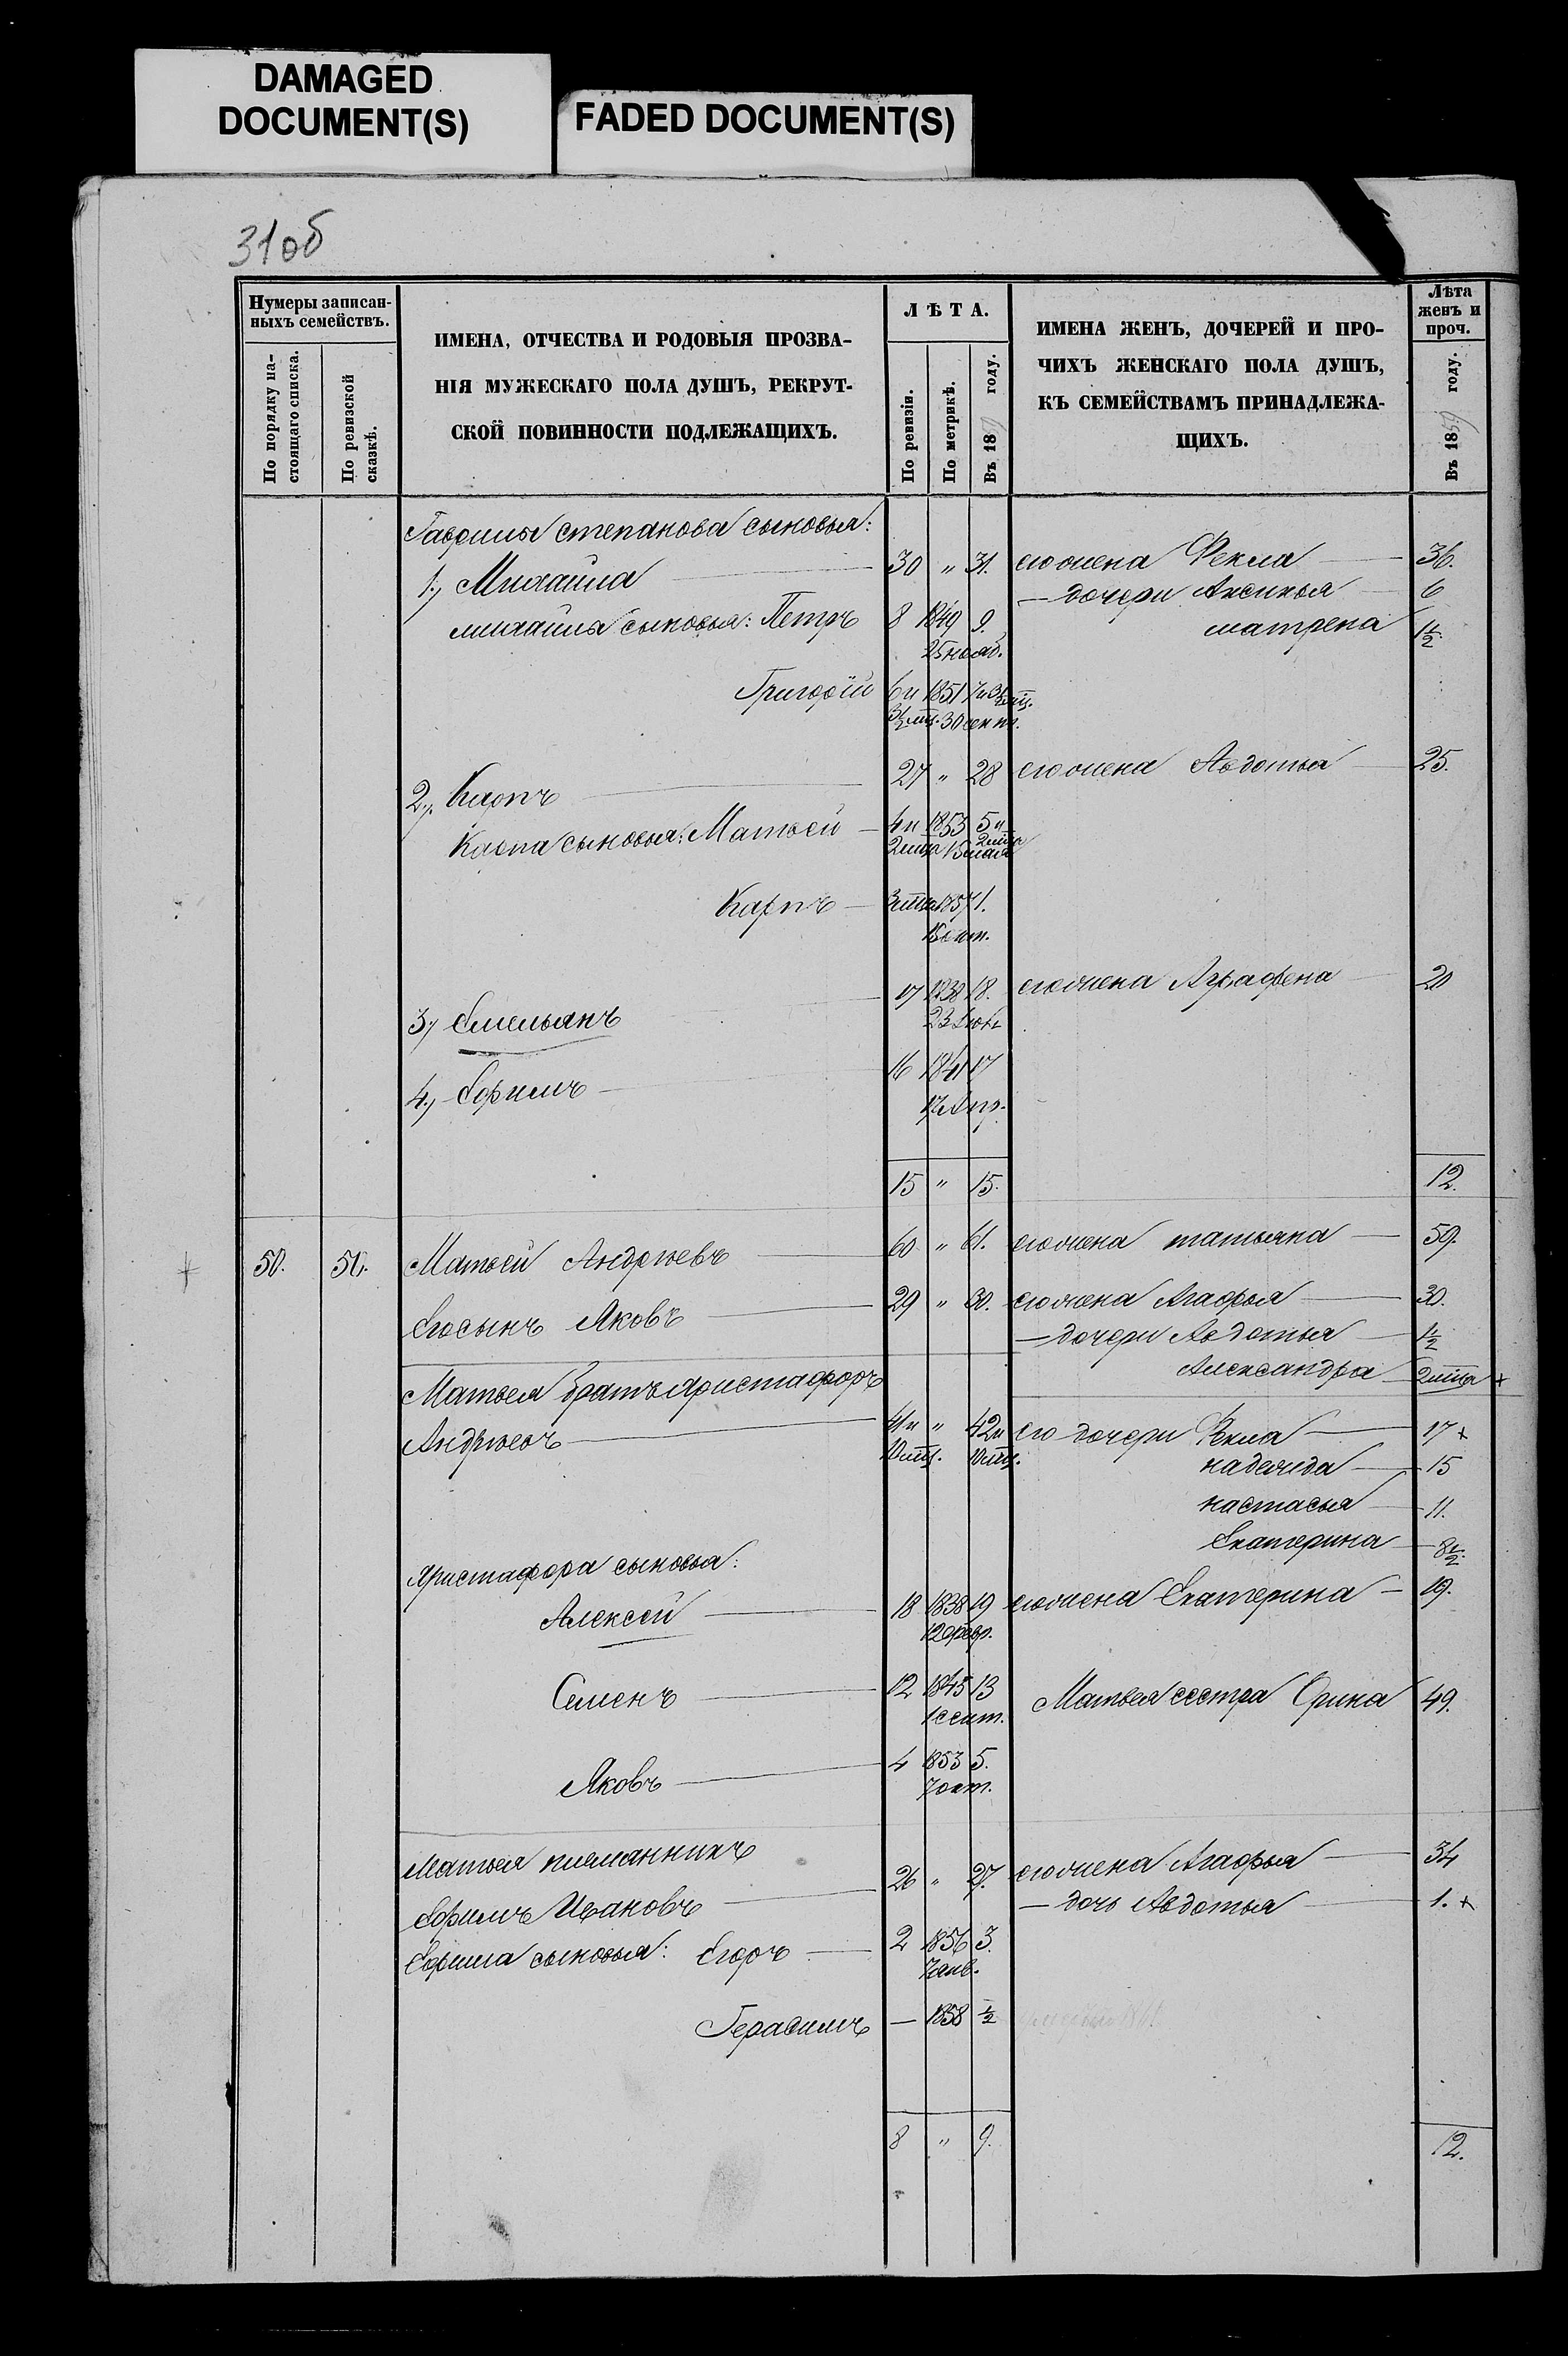 DAMAGED
DOCUMENT(S)
FADED DOCUMENT(S)
31об
Нумеры записан-
ныхъ семействъ.
По порядку на-
стоящаго списка.
По ревизской
сказкѣ.
ИМЕНА, ОТЧЕСТВА И РОДОВЫЯ ПРОЗВА-
НІЯ МУЖЕСКАГО ПОЛА ДУШЪ, РЕКРУТ-
СКОЙ ПОВИННОСТИ ПОДЛЕЖАЩИХЪ.
ЛѢТА.
По ревизіи.
По метрикѣ.
Въ 18 году.
ИМЕНА ЖЕНЪ, ДОЧЕРЕЙ И ПРО-
ЧИХЪ ЖЕНСКАГО ПОЛА ДУШЪ,
КЪ СЕМЕЙСТВАМЪ ПРИНАДЛЕЖА-
ЩИХЪ.
Лѣта
женъ и
проч.
Въ 1859 году.
Гаврилы степанова сыновья:
1., Михаила 30 " 31. его жена Фекла 36.
— дочери Аксинья 6
михаила сыновья: Петръ 8 1849 9. матрена 1½.
25 нояб.
Григорій 6 и 1851 7 и 3½ мѣц.
3½ мѣц. 30 сент.
2., Карпъ 27 " 28 его жена Авдотья 25.
Карпа сыновья: Матвей 4 и 1853 5 и
2 мѣца 15 мая 2 мѣца
Карпъ 3 мѣца 1857 1.
15 сент.
3., Емельянъ 17 1838 18. его жена Аграфена 20
23
4., Ефимъ 16 1841 17
Апр.
15 " 15. 12.
50. 50. Матвей Андреевъ 60 " 61. его жена татьяна 59.
Его сынъ Яковъ 29 " 30. его жена Агафья 30.
— дочери Авдотья 1½
Александра 2 мѣца +
Матвея братъ Аристафоръ
Андреевъ 41 и " 42 и его дочери Фекла 17 +
10 мѣц. 10 мѣц. надежда 15
настасья 11.
Екатерина 8½.
Аристафора сыновья:
Алексей 18 1838 19 его жена Екатерина 19.
12 февр.
Семенъ 12 1845 13 Матвея сестра Орина 49.
1 сент.
Яковъ 4 1853 5.
7 окт.
Матвея племянникъ
Ефимъ Ивановъ 26 " 27. его жена Агафья 34
— дочь Авдотья 1. +
Ефима сыновья: Егоръ 2 1856 3.
7 янв.
Герасимъ — 1858 ½
8 " 9. 12.